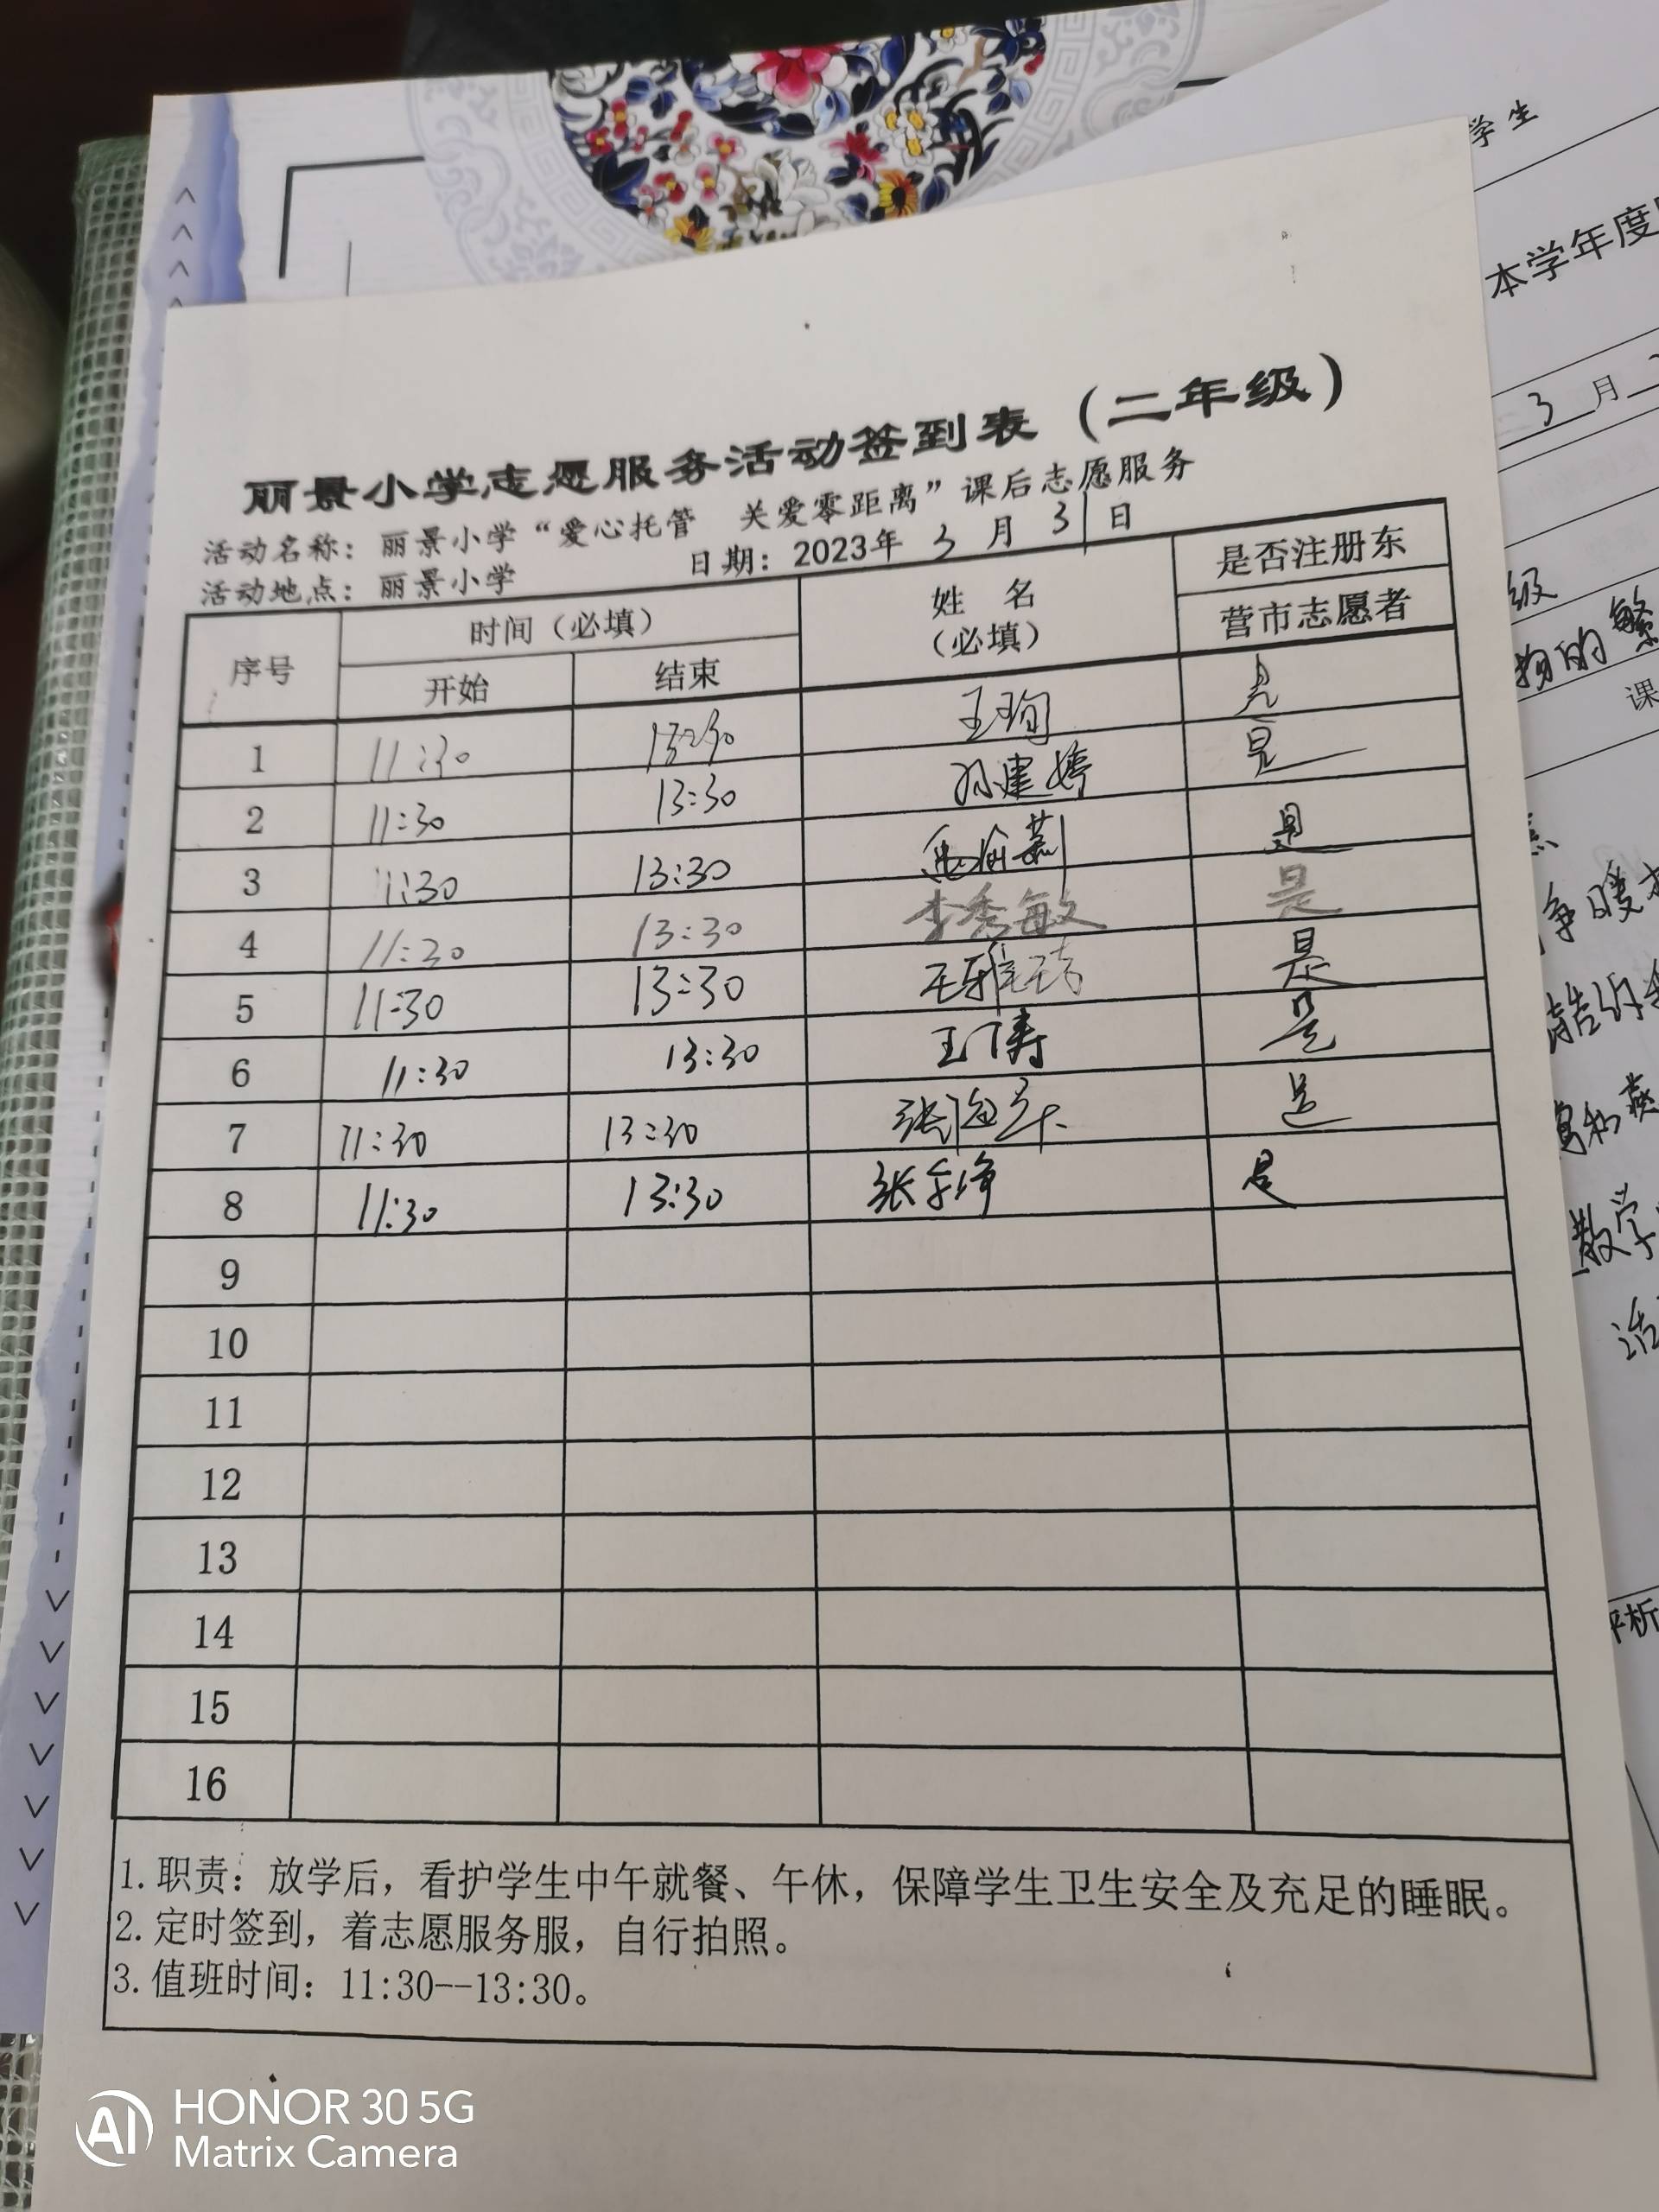 学生
本学年度
3月
丽景小学志愿服务活动签到表（二年级）
活动名称：丽景小学“爱心托管 关爱零距离”课后志愿服务
活动地点：丽景小学 日期：2023年3月31日
序号 时间（必填） 姓名（必填） 是否注册东营市志愿者
开始 结束
1 11:30 王珣 是
2 11:30 13:30 孙建婷 是
3 11:30 13:30 是
4 11:30 13:30 李秀敏 是
5 11:30 13:30 是
6 11:30 13:30 王涛 是
7 11:30 13:30 是
8 11:30 13:30 是
9
10
11
12
13
14
15
16
1.职责：放学后，看护学生中午就餐、午休，保障学生卫生安全及充足的睡眠。
2.定时签到，着志愿服务服，自行拍照。
3.值班时间：11:30--13:30。
级
物的繁
课
争暖
数学
活
评析
AI HONOR 30 5G
Matrix Camera